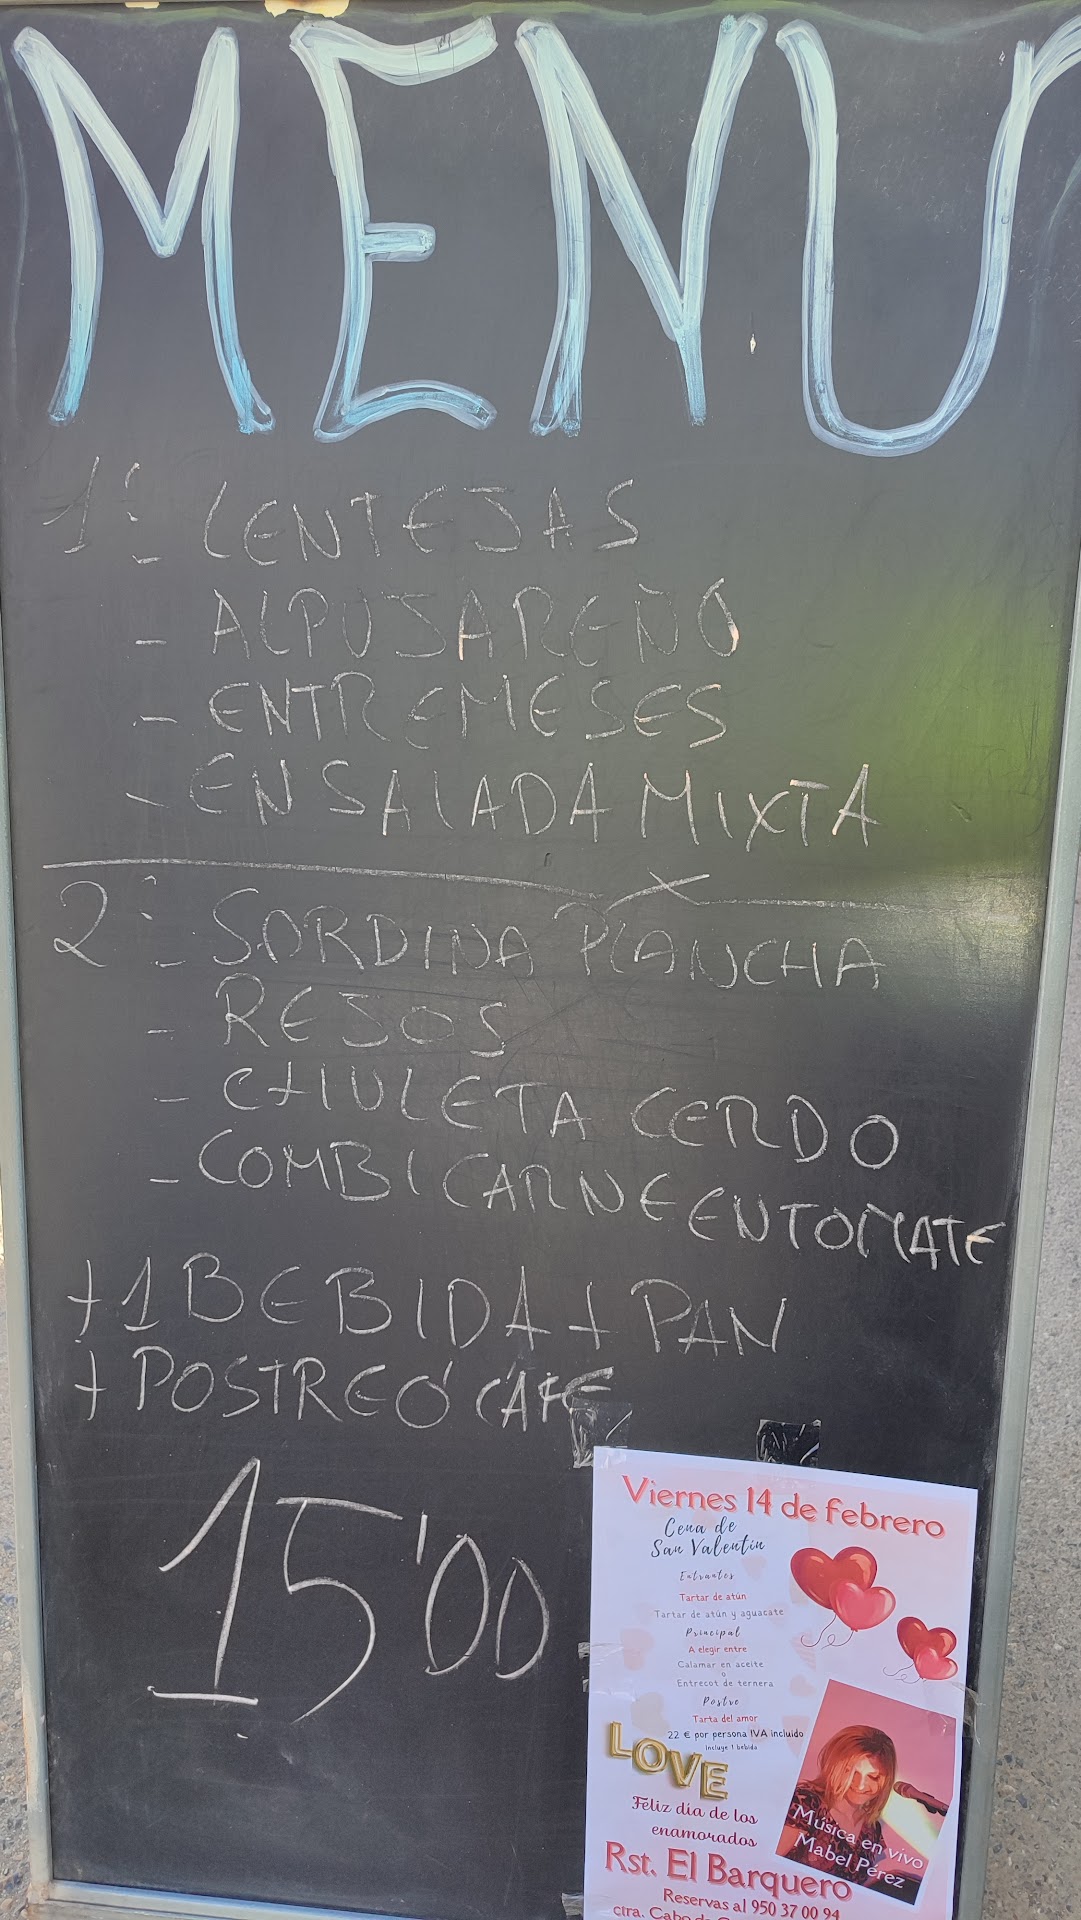 MENU
1º- LENTEJAS
- ALPUJAREÑO
- ENTREMESES
- ENSALADA MIXTA
2º- SORDINA PLANCHA
- REJOS
- CHULETA CERDO
- COMBI CARNE EN TOMATE
+ 1 BEBIDA + PAN
+ POSTRE Ó CAFE
15'00
Viernes 14 de febrero
Cena de
San Valentín
Entrantes
Tartar de atún
Tartar de atún y aguacate
Principal
A elegir entre
Calamar en aceite
o
Entrecot de ternera
Postre
Tarta del amor
22 € por persona IVA incluido
Incluye 1 bebida
LOVE
Feliz día de los
enamorados
Música en vivo
Mabel Pérez
Rst. El Barquero
Reservas al 950 37 00 94
ctra. Cabo de